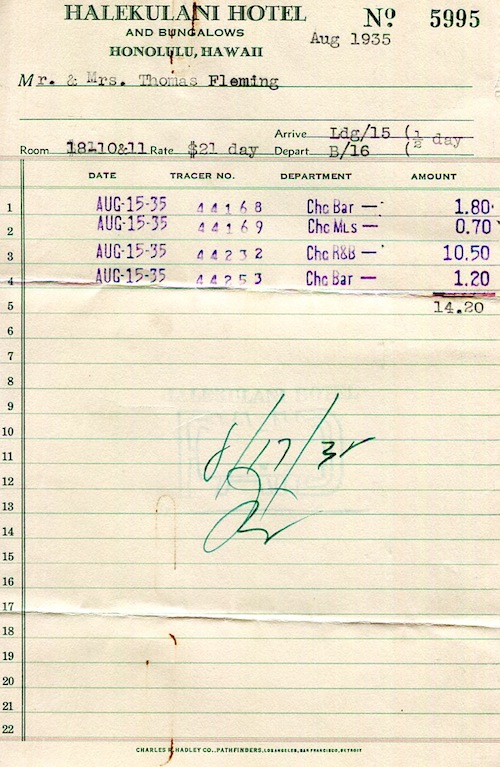 HALEKULANI HOTEL
AND BUNGALOWS
HONOLULU, HAWAII
No 5995
Aug 1935
Mr. & Mrs. Thomas Fleming
Arrive Ldg/15 (½ day
Room 18-10&11 Rate $21 day Depart B/16 (
DATE TRACER NO. DEPARTMENT AMOUNT
1 AUG-15-35 44168 Chc Bar — 1.80
2 AUG-15-35 44169 Chc Mls — 0.70
3 AUG-15-35 44232 Chc R&B — 10.50
4 AUG-15-35 44253 Chc Bar — 1.20
5 14.20
6
7
8
HALEKULANI HOTEL
9
10
11 8/17/35
12
13
14
15
16
17
18
19
20
21
22
CHARLES R. HADLEY CO., PATHFINDERS, LOS ANGELES, SAN FRANCISCO, DETROIT